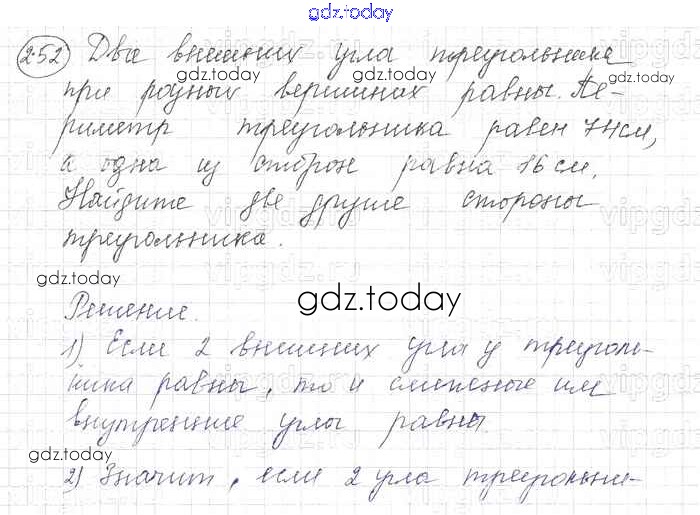 gdz.today
252 Два внешних угла треугольника
gdz.today gdz.today gdz.today
при разных вершинах равны. Пе-
риметр треугольника равен 74 см,
а одна из сторон равна 16 см.
Найдите две другие стороны
треугольника.
gdz.today
Решение.
gdz.today
1) Если 2 внешних угла у треуголь-
ника равны, то и смежные им
внутренние углы равны.
gdz.today gdz.today
2) Значит, если 2 угла треугольни-